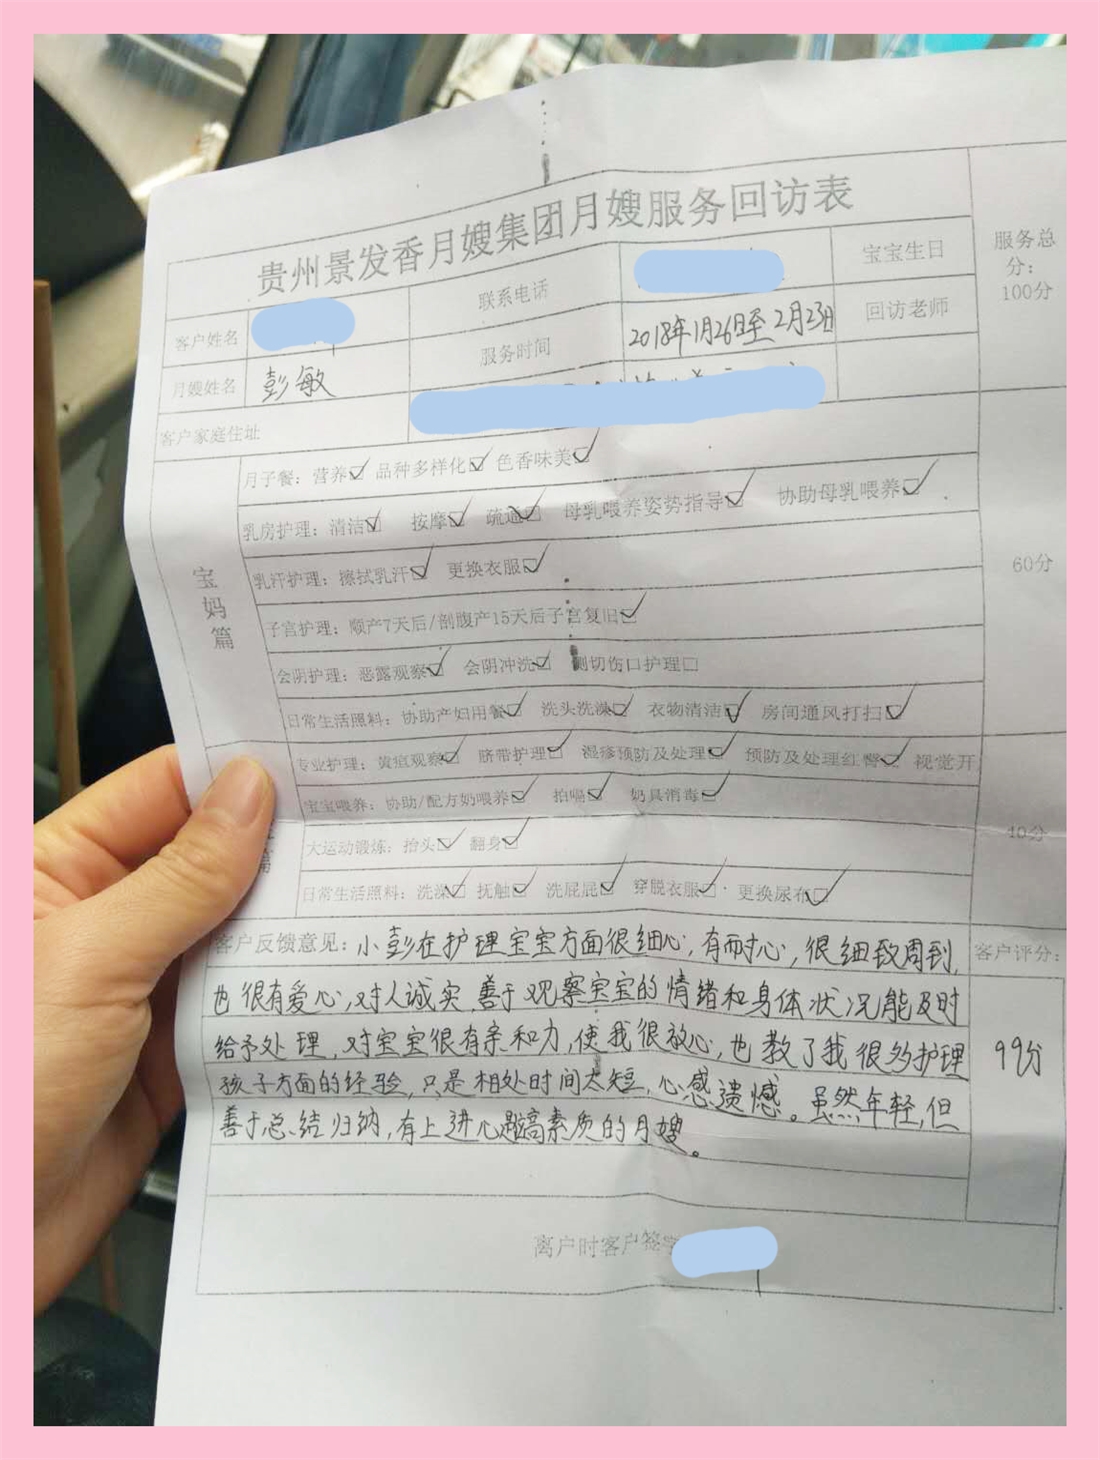 贵州景发香月嫂集团月嫂服务回访表
服务总分：100分
客户姓名 联系电话 宝宝生日
月嫂姓名 彭敏 服务时间 2018年1月26日至2月23日 回访老师
客户家庭住址
宝妈篇
月子餐：营养☑ 品种多样化☑ 色香味美☑
乳房护理：清洁☑ 按摩☑ 疏通☑ 母乳喂养姿势指导☑ 协助母乳喂养☑
乳汗护理：擦拭乳汗☑ 更换衣服☑
60分
子宫护理：顺产7天后/剖腹产15天后子宫复旧☑
会阴护理：恶露观察☑ 会阴冲洗☑ 侧切伤口护理□
日常生活照料：协助产妇用餐☑ 洗头洗澡☑ 衣物清洁☑ 房间通风打扫☑
专业护理：黄疸观察☑ 脐带护理☑ 湿疹预防及处理☑ 预防及处理红臀☑ 视觉开
宝宝喂养：协助/配方奶喂养☑ 拍嗝☑ 奶具消毒☑
40分
大运动锻炼：抬头☑ 翻身☑
篇
日常生活照料：洗澡☑ 抚触☑ 洗屁屁☑ 穿脱衣服☑ 更换尿布☑
客户反馈意见：小彭在护理宝宝方面很细心，有耐心，很细致周到，
也很有爱心，对人诚实，善于观察宝宝的情绪和身体状况能及时
给予处理，对宝宝很有亲和力，使我很放心，也教了我很多护理
孩子方面的经验，只是相处时间太短，心感遗憾。虽然年轻，但
善于总结归纳，有上进心高素质的月嫂。
客户评分：
99分
离户时客户签字